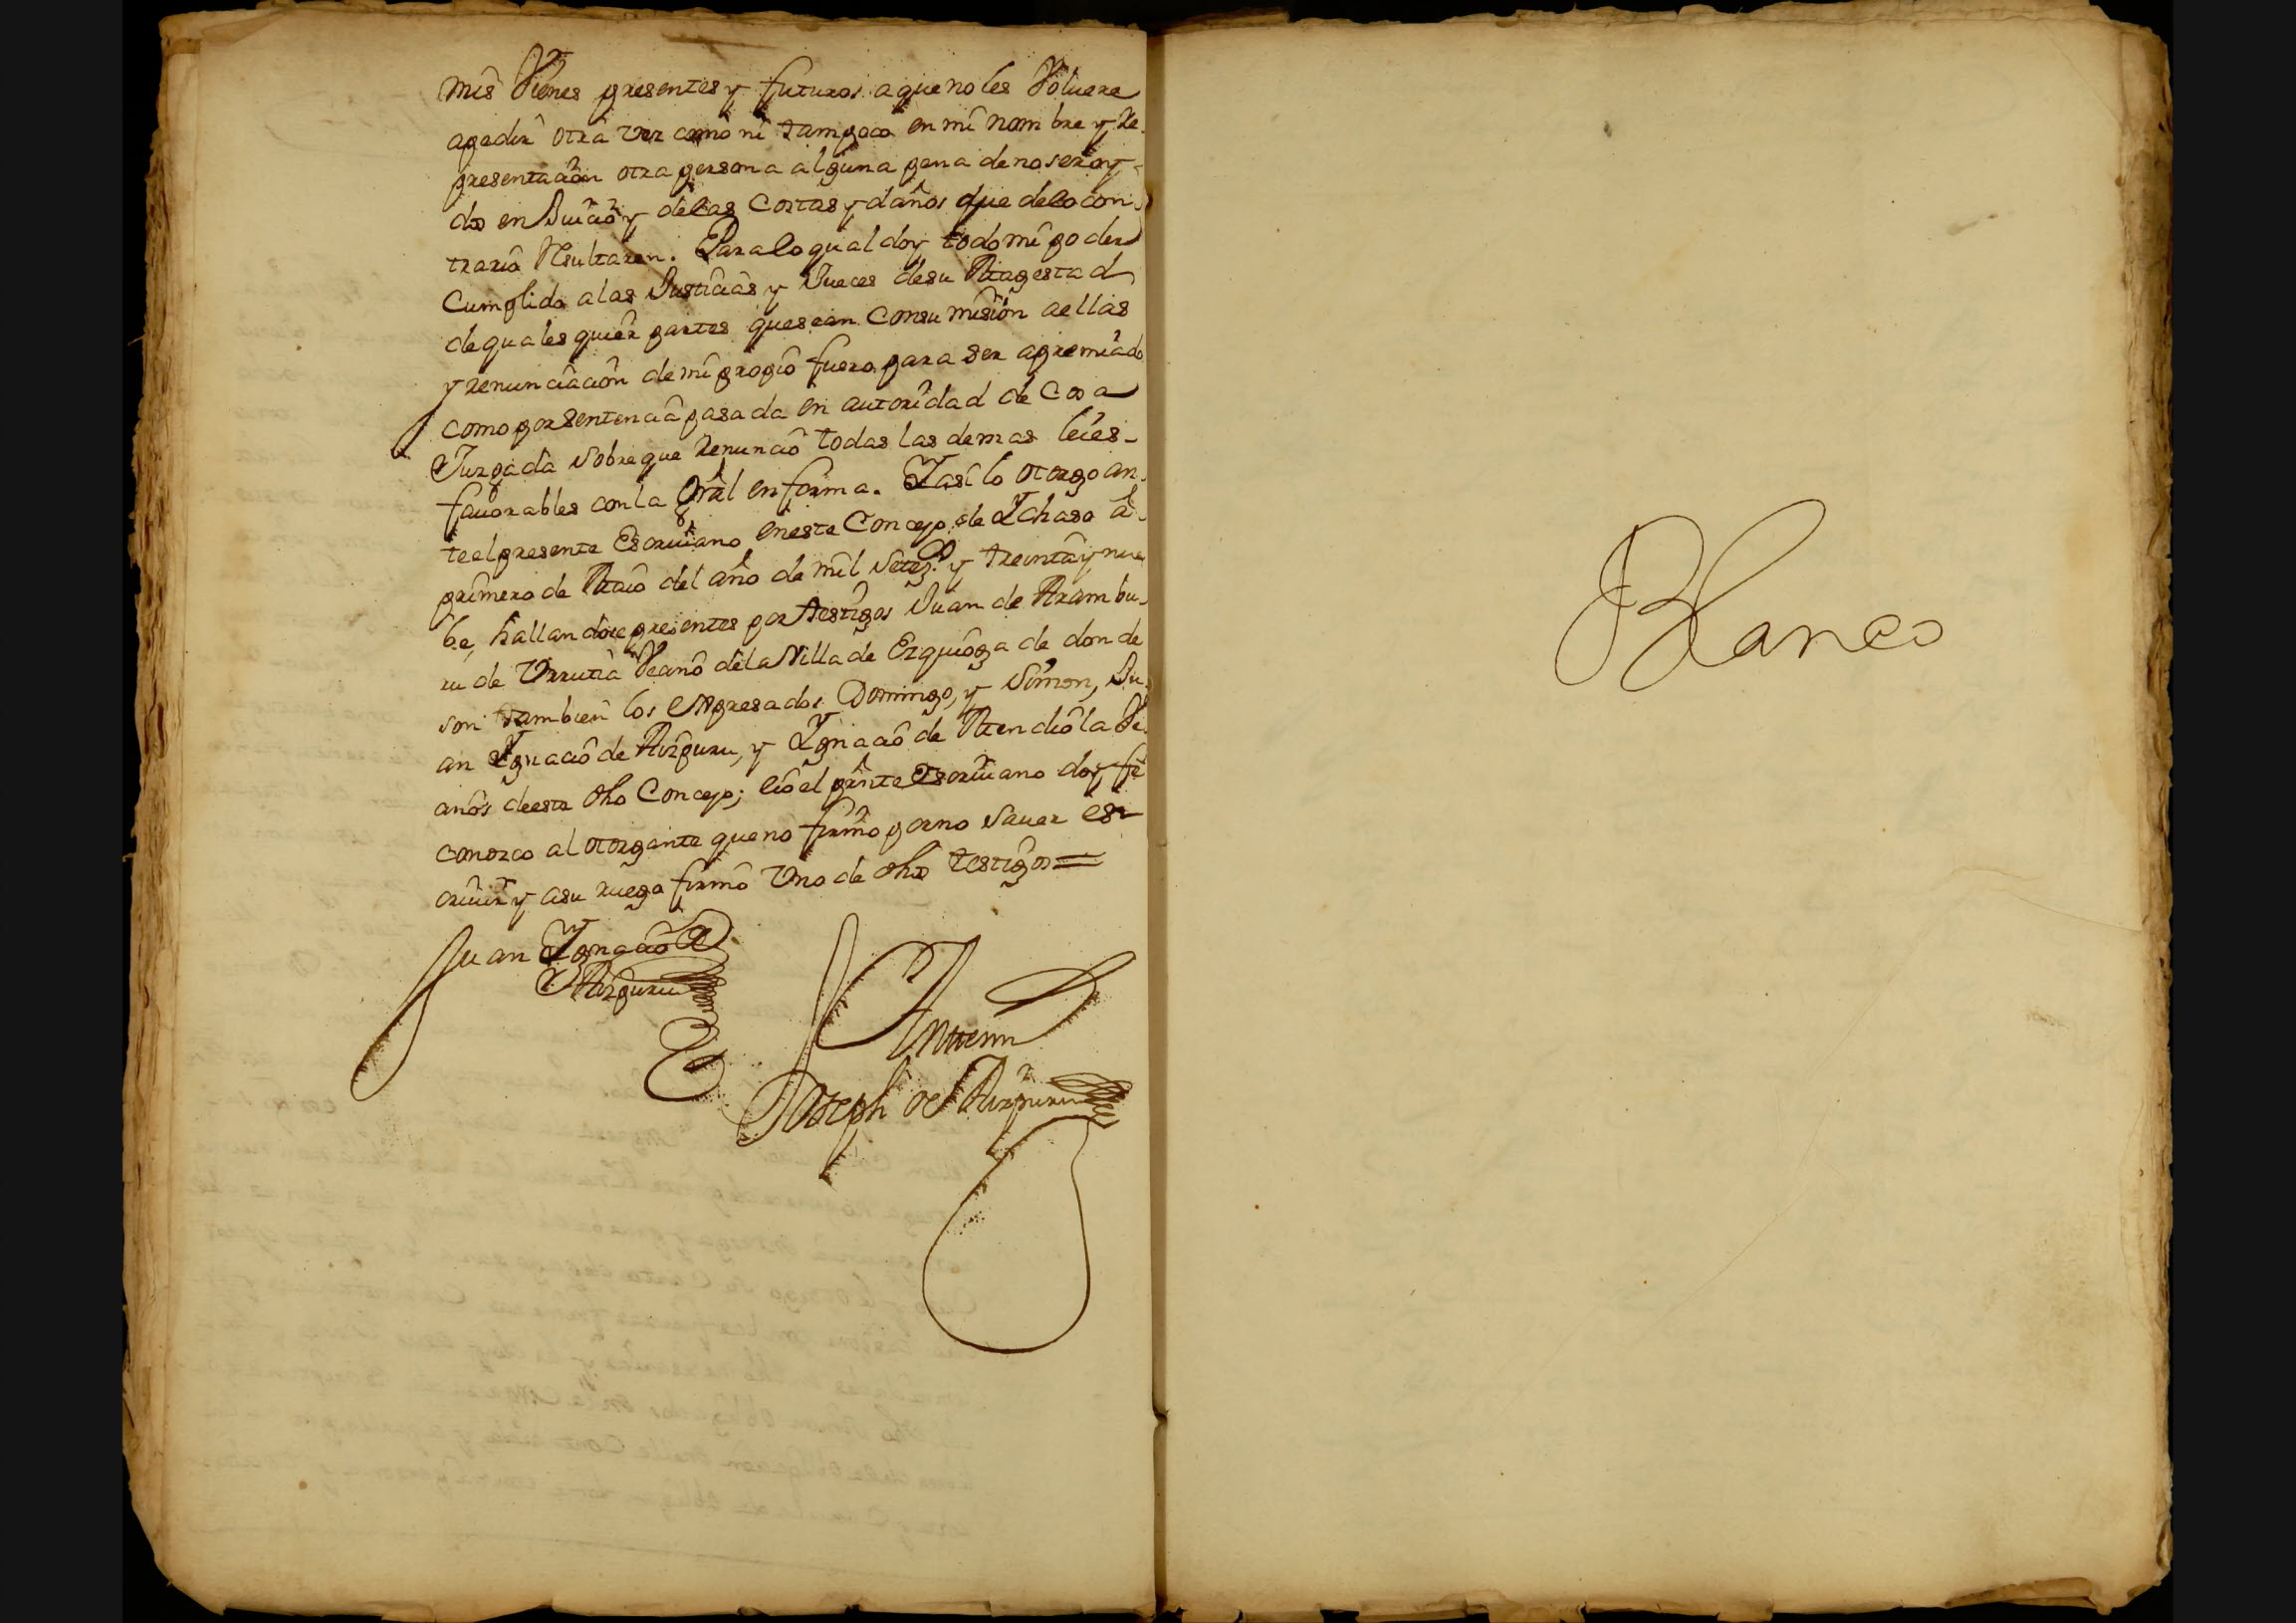 mis Vienes presentes y futuros aque no les Voluere
apedir otra vez como ni tampoco en mi nombre y Re-
presentacion otra persona alguna pena de no ser oy-
do en Juicio y delas Costas y daños que delo con-
trario Resultaren. Para lo qual doy todo mi poder
Cumplido alas Justicias y Jueces desu Magestad
de quales quier partes que sean Consu mision aellas
y renunciacion de mi propio fuero para ser apremiado
como por Sentencia pasada en autoridad de Cosa
Juzgada sobre que Renuncio todas las demas leies
fauorables con la Gral en forma. Y asi lo otorgo an-
te el presente Escriuano en este Concejo de Ychaso a
primero de Maio del año de mil Setez.s y treinta y nue-
be, hallandose presentes por testigos Juan de Arambu-
ru de Vrrutia Vecino dela Villa de Ezquioga de donde
son tambien los expresados Domingo, y Simon, Ju-
an Ygnacio de Aizpuru, y Ygnacio de Mendiola Ve-
cinos de este dho Concejo; e io el prnte Escriuano doy fe
conozco al otorgante que no firmo por no sauer es-
criuir y asu ruego firmo Vno de dhos testigos =
Juan Ygnacio de
Aizpuru
Antemi
Joseph de Aizpuru
Blanco